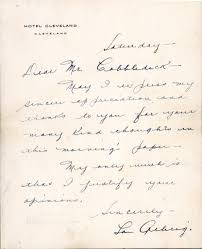 HOTEL CLEVELAND
CLEVELAND
Saturday—
Dear Mr. Cobbledick
May I express my
sincere appreciation and
thanks to you for your
many kind thoughts in
this morning's paper—
My only wish is
that I justify your
opinions.
Sincerely—
Lou Gehrig.